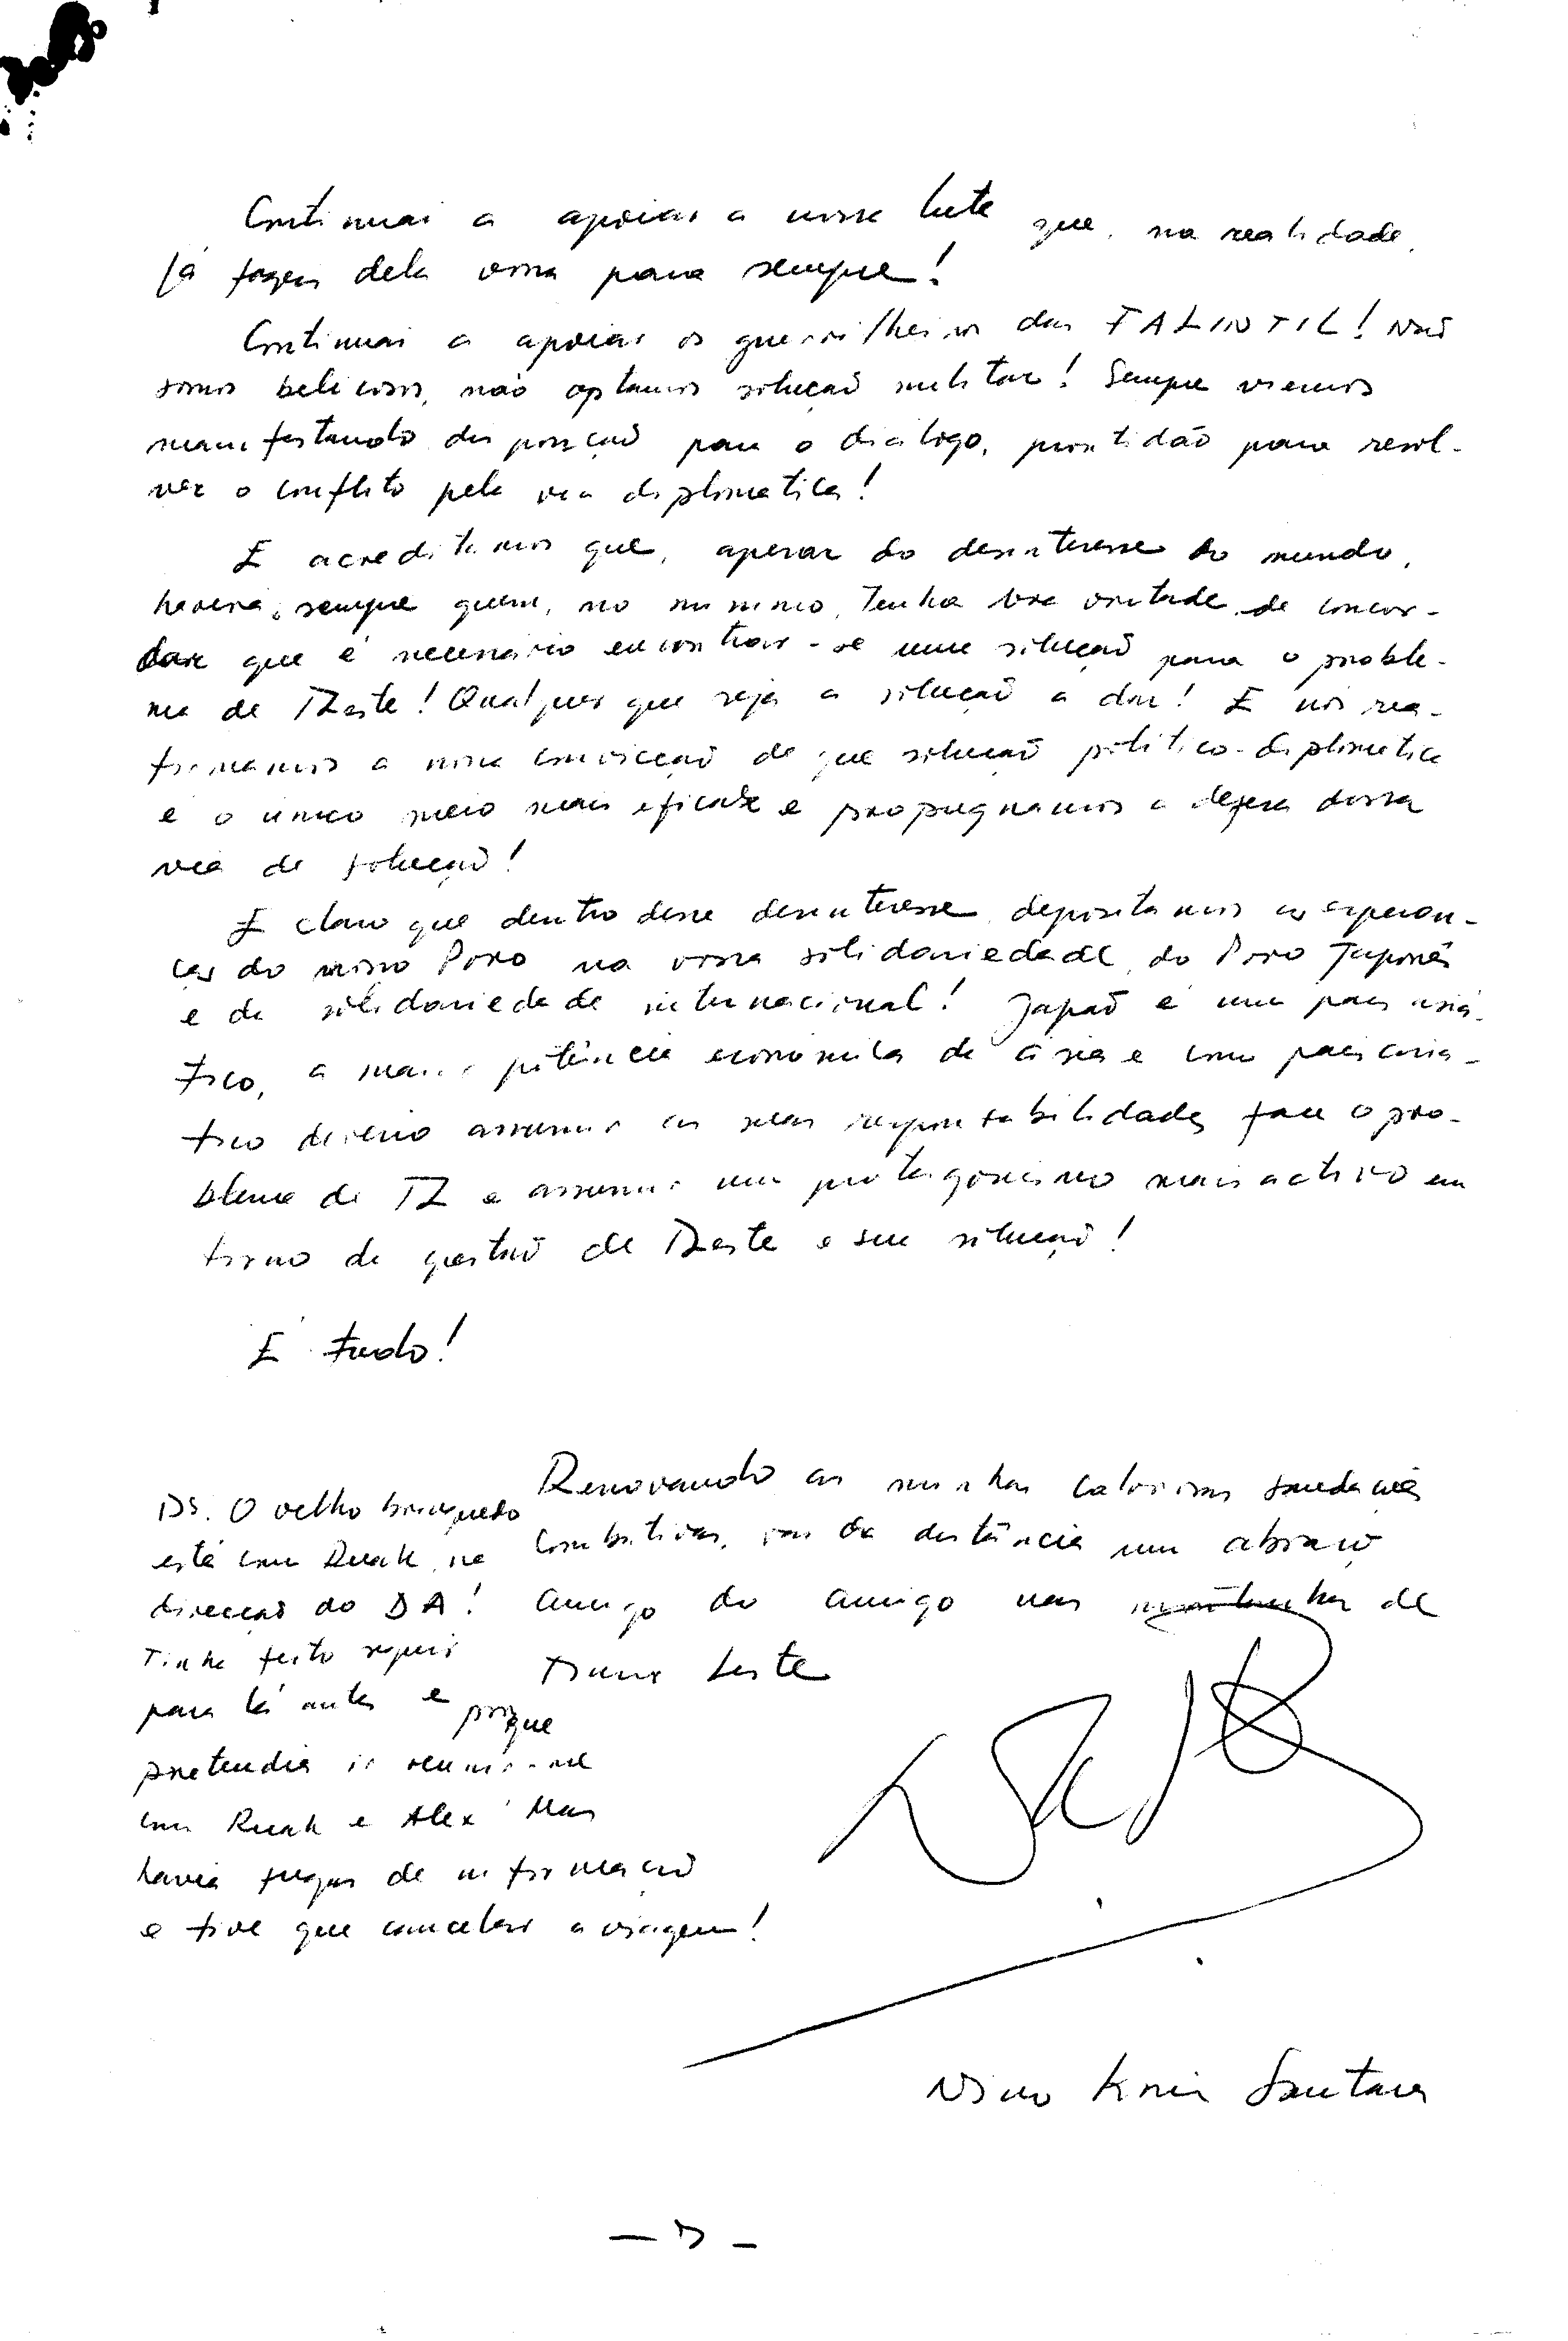 Continuai a apoiar a nossa luta que, na realidade,
já fazeis dela vossa para sempre!
Continuai a apoiar os guerrilheiros das FALINTIL! Não
somos belicosos, não optamos solução militar! Sempre viemos
manifestando disposição para o diálogo, prontidão para resol-
ver o conflito pela via diplomática!
E acreditamos que, apesar do desinteresse do mundo,
haverá sempre quem, no mínimo, tenha boa vontade de concor-
dar que é necessário encontrar-se uma solução para o proble-
ma de TLeste! Qualquer que seja a solução a dar! E nós rea-
firmamos a nossa convicção de que solução político-diplomática
é o único meio mais eficaz e propugnamos a defesa dessa
via de solução!
É claro que dentro desse desinteresse depositamos as esperan-
ças do nosso Povo na vossa solidariedade, do Povo Japonês
e da solidariedade internacional! Japão é um país asiá-
tico, a maior potência económica de ásia e como país asiá-
tico deveria assumir as suas responsabilidades face o pro-
blema de TL e assumir um protagonismo mais activo em
torno da questão de TLeste e sua solução!
É tudo!
Renovando as minhas calorosas saudações
combativas, vai da distância um abraço
amigo do amigo nas montanhas de
Timor Leste
Ps. O velho brinquedo
está com Ruak, na
direcção do DA!
Tinha feito seguir
para lá antes e porque
pretendia ir reunir-me
com Ruak e Alex! Mas
havia fugas de informação
e tive que cancelar a viagem!
Nino Konis Santana